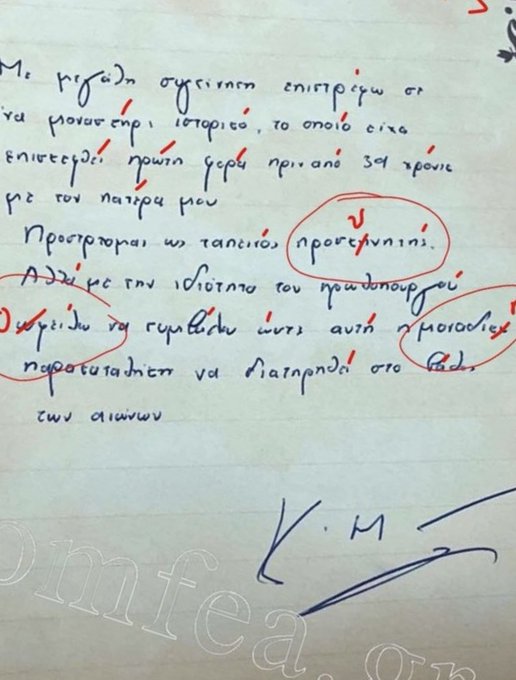 Με μεγάλη συγκίνηση επιστρέφω σε
να μοναστήρι ιστορικό, το οποίο είχα
επισκεφθεί πρώτη φορά πριν από 39 χρόνια
με τον πατέρα μου
Προσέρχομαι ως ταπεινός προσκηνητής.
υ
Αλλά με την ιδιότητα του πρωθυπουργού
ωφείλω να συμβάλω ώστε αυτή η
παρακαταθήκη να διατηρηθεί στο βάθος
των αιώνων
Κ. Μ
omfea.gr